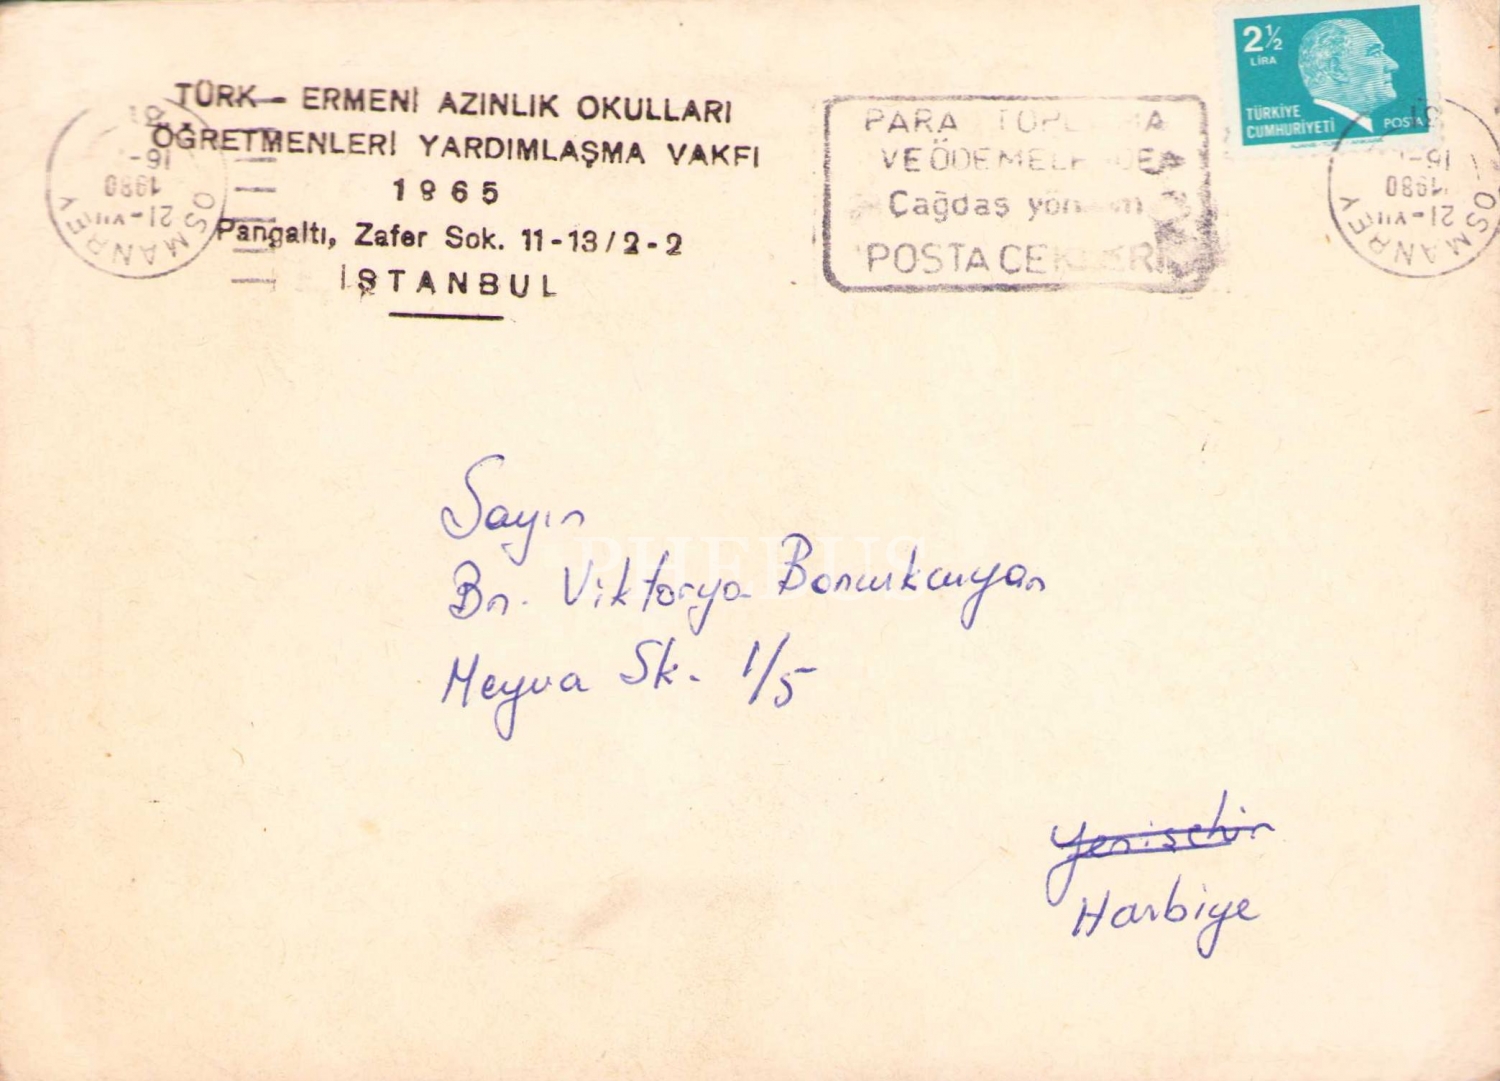 TÜRK - ERMENİ AZINLIK OKULLARI
ÖĞRETMENLERİ YARDIMLAŞMA VAKFI
1965
Pangaltı, Zafer Sok. 11-13/2-2
İSTANBUL
OSMANBEY
21-VII
1980
16-
PARA TOPLAMA
VE ÖDEMELERDE
Çağdaş yöntem
POSTA ÇEKLERİ
2½
LİRA
TÜRKİYE
CUMHURİYETİ
POSTA
OSMANBEY
21-VII
1980
16-
Sayın
Bn. Viktorya Boncukcuyan
Meyva Sk. 1/5
Yenişehir
Harbiye
PHEBUS